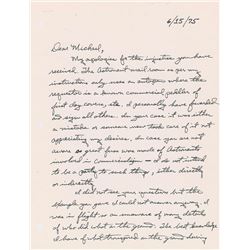 6/25/75
Dear Michael,
My apologies for the injustice you have
received. The Astronaut mail room as per my
instructions only uses an autopen where the
requestor is a known commercial peddler of
first day covers, etc. I personally have founded
and sign all others. In your case it was either
a mistake or someone new took care of it not
appreciating my desires. In case you are not
aware so great fuss was made of Astronauts
involved in commercialism — I do not intend
to be a party to such things, either directly
or indirectly.
I did not see your question but the
example you gave I could not answer anyway. I
was in flight so am unaware of many details
of who did what on the ground. The best knowledge
I have of what transpired on the ground during